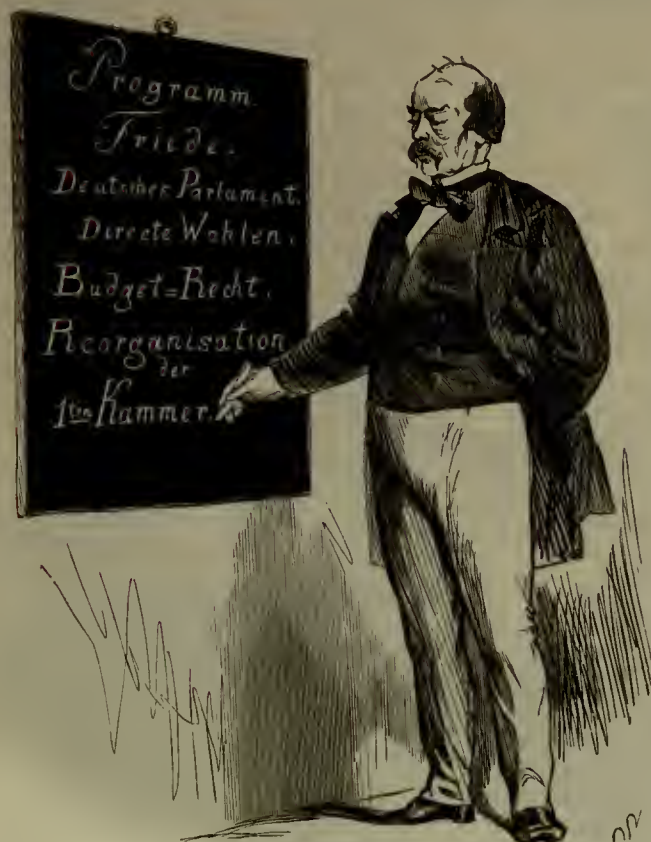 Programm.
Friede.
Deutsches Parlament.
Directe Wahlen.
Budget=Recht.
Reorganisation
der
1ten Kammer.